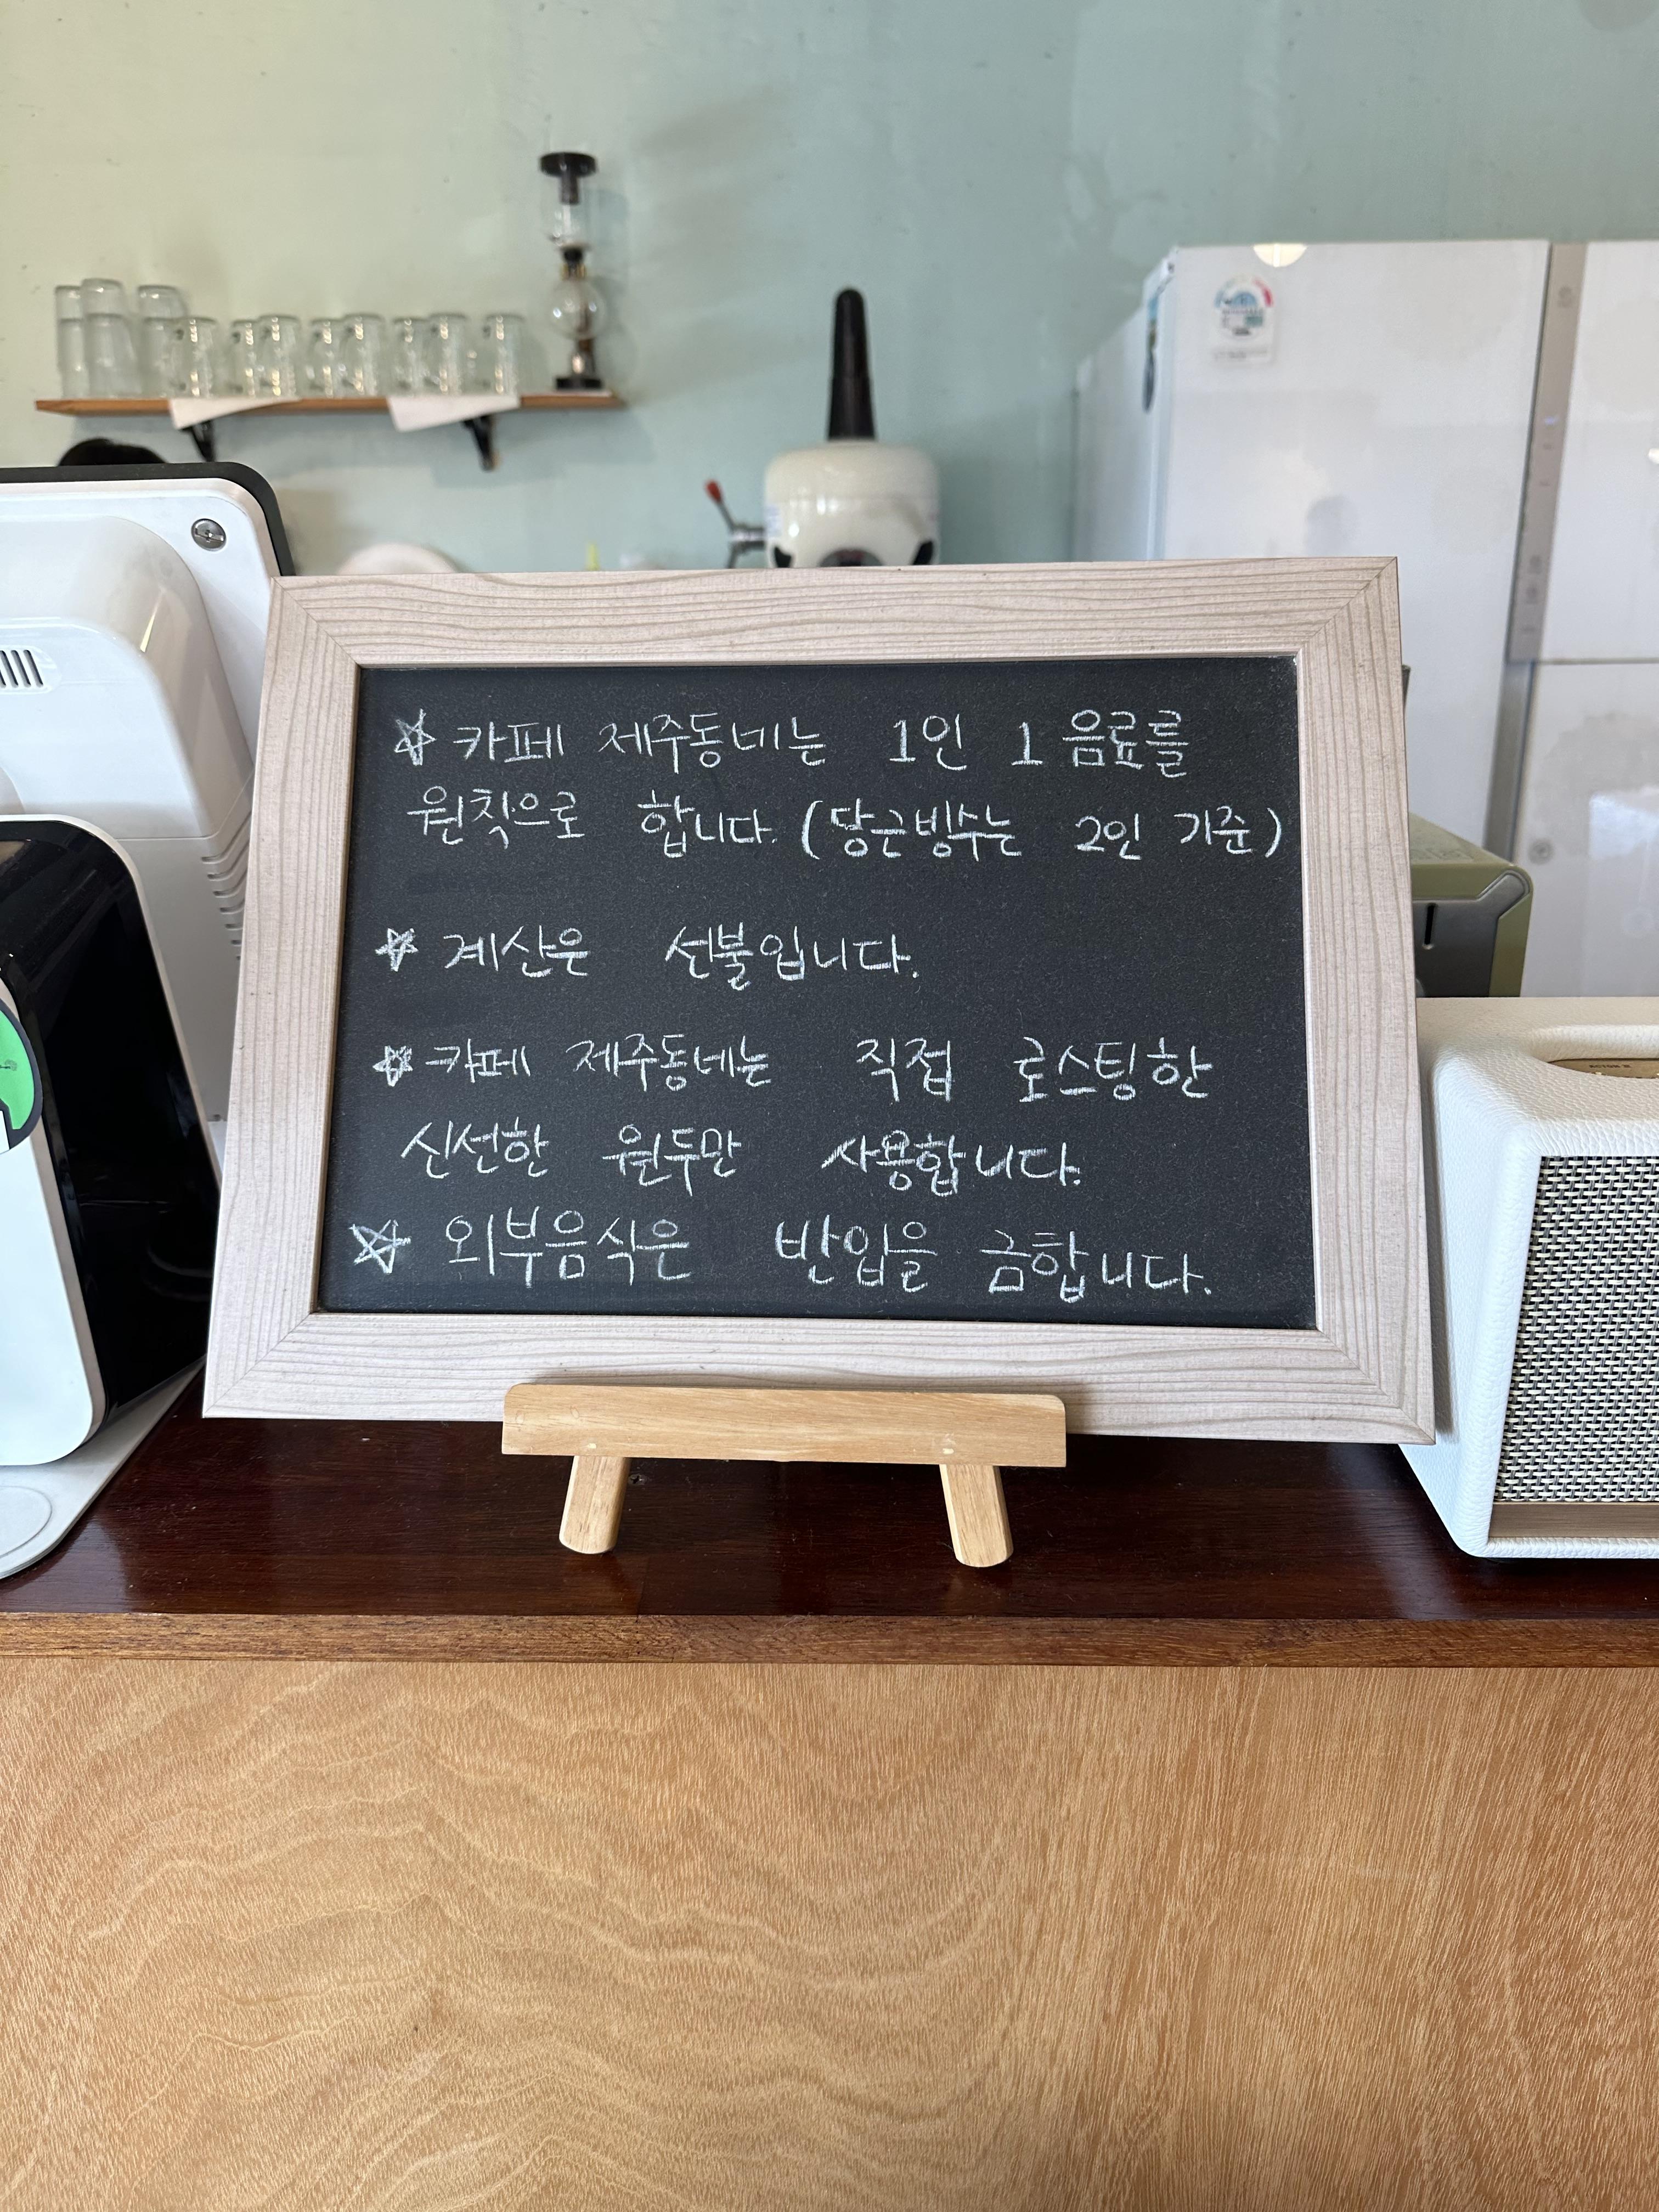 ☆ 카페 제주동네는 1인 1음료를
원칙으로 합니다. (당근빙수는 2인 기준)
☆ 계산은 선불입니다.
☆ 카페 제주동네는 직접 로스팅한
신선한 원두만 사용합니다.
☆ 외부음식은 반입을 금합니다.